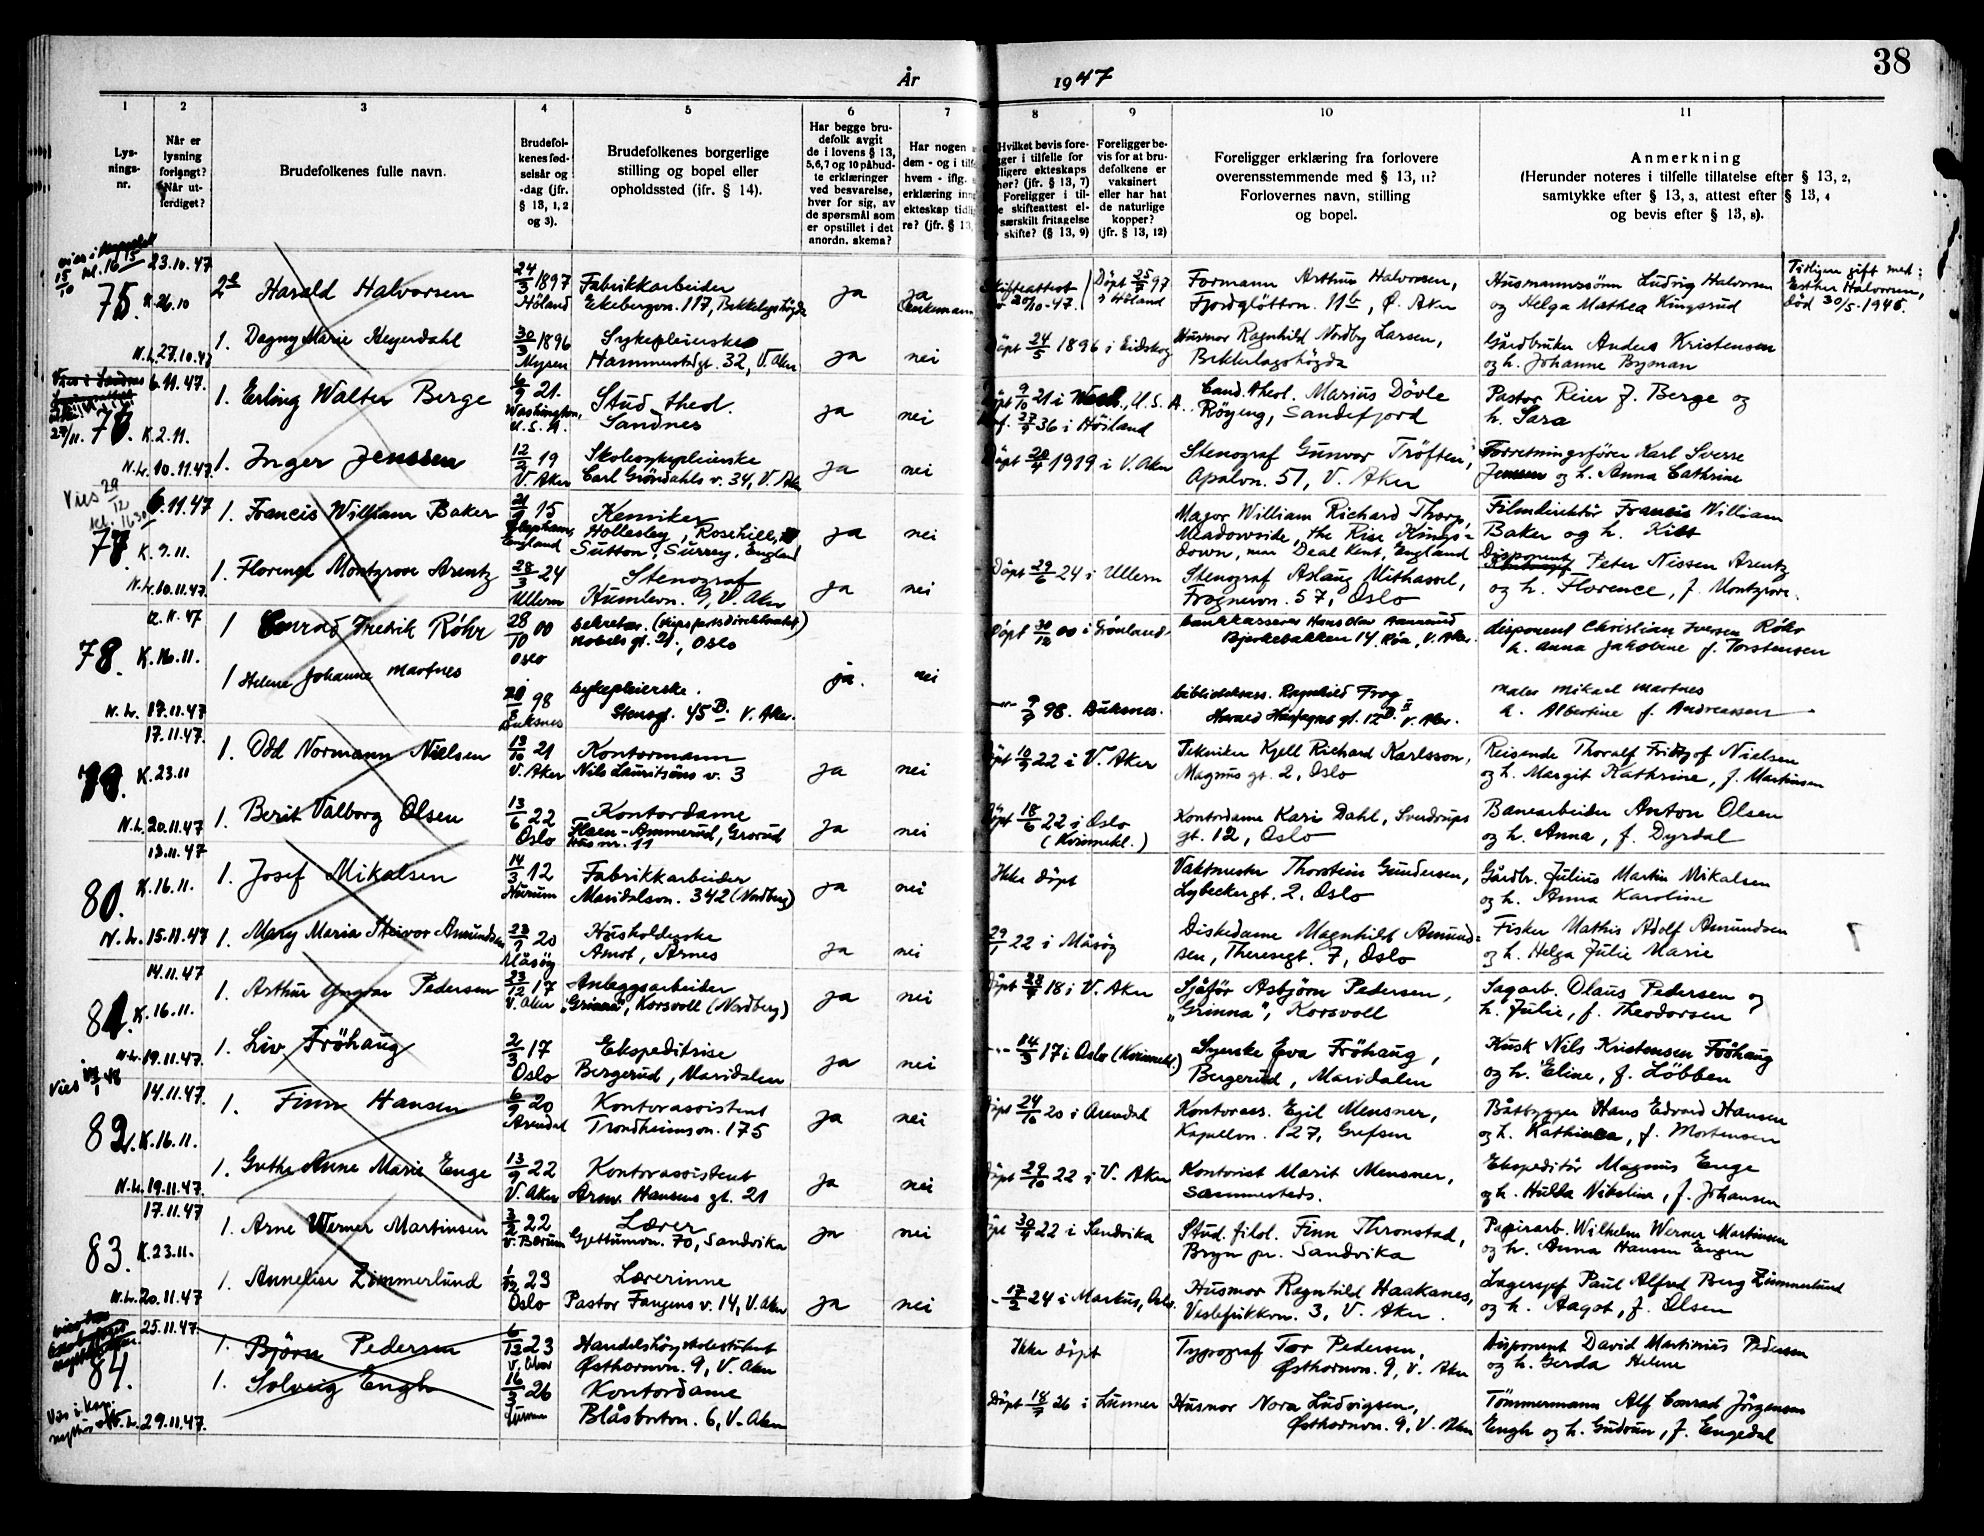 38
År 1947
1 2 3 4 5 6 7 8 9 10 11
Lys-
nings-
nr.
Når er
lysning
forlangt?
Når ut-
ferdiget?
Brudefolkenes fulle navn.
Brudefol-
kenes fød-
selsår og
-dag (jfr.
§ 13, 1, 2
og 3).
Brudefolkenes borgerlige
stilling og bopel eller
opholdssted (jfr. § 14).
Har begge bru-
defolk avgit
de i lovens § 13,
5, 6, 7 og 10 påbud-
te erklæringer
ved besvarelse,
hver for sig, av
de spørsmål som
er opstillet i det
anordn. skema?
Har nogen
dem - og i tilf
hvem - iflg.
erklæring inn
ekteskap tidli
re? (jfr. § 13,
Hvilket bevis fore-
ger i tilfelle for
ligere ekteskaps
hør? (jfr. § 13, 7)
Foreligger i til-
e skifteattest el-
særskilt fritagelse
skifte? (§ 13, 9)
Foreligger be-
vis for at bru-
defolkene er
vaksinert
eller har hat
de naturlige
kopper?
(jfr. § 13, 12)
Foreligger erklæring fra forlovere
overensstemmende med § 13, 11?
Forlovernes navn, stilling
og bopel.
Anmerkning
(Herunder noteres i tilfelle tillatelse efter § 13, 2,
samtykke efter § 13, 3, attest efter § 13, 4
og bevis efter § 13, 8).
75. 23.10.47 K. 26.10
Harald Halvorsen 24/3 1897 Høland Fabrikkarbeider Ekebergvn. 117, Bekkelagshøgda ja ja Enkemann
Skifteattest 20/10-47. Döpt 25/5 97 i Höland Formann Arthur Halvorsen, Fjordgløtton. 11 b, Ö. Aker
Husmannssönn Ludvig Halvorsen og Helga Mathea Kingsrud
Tidligere gift med: Esther Halvorsen, död 30/5-1946.
N.L. 27.10.47 1. Dagny Marie Heyerdahl 30/3 1896 Mysen Sykepleierske Hammerstadgt. 32, V. Aker ja nei
Döpt 24/5 1896 i Eidskog Husmor Ragnhild Nordby Larsen, Bekkelagshögda
Gårdbruker Anders Kristensen og h. Johanne Byman
76. 6.11.47. K. 2.11. 1. Erling Walter Berge 6/9 21. Washington, U.S.A. Stud. theol. Sandnes ja nei
Döpt 9/10 21 i Wash., U.S.A. 27/9 36 i Höiland Cand. theol. Marius Dövle Röyeng, Sandefjord
Pastor Reier J. Berge og h. Sara
N.L. 10.11.47 1. Inger Jenssen 12/2 19 V. Aker Skolesykepleierske Carl Gröndahls v. 34, V. Aker ja nei
Döpt 20/4 1919 i V. Aker Stenograf Gunvor Tröften, Apalvn. 51, V. Aker
Forretningsförer Karl Sverre Jenssen og h. Anna Cathrine
Vies 29/12 kl. 1630
77. 6.11.47 K. 9.11. 1. Francis William Baker 21/9 15 England Kemiker Hollesley, Rosehill, Sutton, Surrey, England ja nei
Major William Richard Thorp, Meadowside, the Rise Kings-down, near Deal Kent, England
Filmdirektör Francis William Baker og h. Kitt
N.L. 10.11.47. 1. Florence Montgrove Arentz 28/3 24 Ullern Stenograf Humlevn. 9, V. Aker ja nei
Döpt 29/6 24 i Ullern Stenograf Aslaug Mithassel, Frognervn. 57, Oslo
Disponent Peter Nissen Arentz og h. Florence, f. Montgrove.
78. K. 16.11. 1 Conrad Fredrik Röhr 28/10 00 Oslo Sekretær. (skipsfartsdirektoratet) Nobels gt. 21., Oslo
Döpt 30/12 00 i Grönland. Bankkasserer Hans Olav Aamerud Bjerkebakken 14, Röa, V. Aker.
disponent Christian Iversen Röhr h. Anna Jakobine f. Torstensen
N.L. 17.11.47 1 Helene Johanne Martnes 98 Buksnes Sykepleierske. Stensgt. 45 B. V. Aker. ja. nei
9/7 98. Buksnes. biblioteksass. Ragnhild Frog Harald Hårfagres gt. 12 B. II V. Aker.
maler Mikael Martnes h. Albertine f. Andreassen
79. 17.11.47. K. 23.11 1. Odd Normann Nielsen 13/10 21 V. Aker Kontormann Nils Lauritsöns v. 3 ja nei
Döpt 10/9 22 i V. Aker Tekniker Kjell Richard Karlsson, Magnus gt. 2, Oslo
Reisende Thoralf Fridtjof Nielsen og h. Margit Kathrine, f. Martinsen
N.L. 20.11.47 1. Berit Valborg Olsen 13/6 22 Oslo Kontordame Flaen-Ammerud, Grorud Hus nr. 11 ja nei
Döpt 18/6 22 i Oslo (Kvinnekl.) Kontordame Kari Dahl, Sverdrups gt. 12, Oslo
Banearbeider Anton Olsen og h. Anna, f. Dyrdal
80. 13.11.47 K. 16.11. 1. Josef Mikalsen 14/3 12 Hurum Fabrikkarbeider Maridalsvn. 342 (Nordberg) ja nei
Ikke döpt Vaktmester Thorstein Gundersen, Lybeckergt. 2, Oslo
Gårdbr. Julius Martin Mikalsen og h. Anna Karoline
N.L. 15.11.47 1. Mary Maria Steivor Amundsen 23/9 20 Måsöy Husholderske Amot, Årnes ja nei
29/1 22 i Måsöy Diskedame Magnhild Amund-sen, Theresegt. 7, Oslo
Fisker Mathis Adolf Amundsen og h. Helga Julie Marie
81. 14.11.47 K. 16.11. 1. Arthur Yngvar Pedersen 23/12 17 V. Aker Anleggsarbeider "Grinna", Korsvoll (Nordberg) ja nei
Döpt 18 i V. Aker Sjåför Asbjörn Pedersen, "Grinna", Korsvoll
Sagarb. Olaus Pedersen og h. Julie, f. Theodorsen
N.L. 19.11.47. 1. Liv Fröhaug 2/3 17 Oslo Ekspeditrise Bergerud, Maridalen ja nei
14/3 17 i Oslo (Kvinnekl.) Syerske Eva Fröhaug, Bergerud, Maridalen
Kusk Nils Kristensen Fröhaug og h. Eline, f. Löbben
82. 14.11.47. K. 16.11. 1. Finn Hansen 6/9 20 Arendal Kontorassistent Trondheimsvn. 175 ja nei
Döpt 24/10 20 i Arendal Kontorass. Egil Mensner, Kapellvn. 127, Grefsen
Båtbygger Hans Edvard Hansen og h. Kathinca, f. Mortensen
N.L. 19.11.47. 1. Grethe Anne Marie Enge 13/9 22 V. Aker Kontorassistent Arno. Hansens gt. 21 ja nei
Döpt 29/10 22 i V. Aker Kontorist Marit Mensner, Sammesteds.
Ekspeditör Magnus Enge og h. Hulda Nikoline, f. Johansen
83. 17.11.47 K. 23.11. 1. Arne Werner Martinsen 3/2 22 V. Bærum Lærer Gjettumvn. 70, Sandvika ja nei
30/4 22 i Sandvika Stud. filol. Finn Thronstad, Bryn pr. Sandvika
Papirarb. Wilhelm Werner Martinsen og h. Anna Hansen Engen
N.L. 20.11.47 1. Annelise Zimmerlund 1/12 23 Oslo Lærerinne Pastor Fangens v. 14, V. Aker ja nei
17/2 24 i Markus, Oslo. Husmor Ragnhild Haakanes, Veslefrikkvn. 3, V. Aker.
Lagersjef Paul Alfred Berg Zimmerlund og h. Aagot, f. Olsen
84. 25.11.47. 1. Björn Pedersen 6/12 23 V. Aker Handelshögskolestudent Østhornvn. 9, V. Aker
Ikke döpt Typograf Tor Pedersen, Østhornvn. 9, V. Aker
Disponent David Martinius Pedersen og h. Gerda Helene
29.11.47. 1. Solveig Engh 16/3 26 Lunner Kontordame Blåsbortvn. 6, V. Aker
Döpt 18/7 26 i Lunner Husmor Nora Ludvigsen, Østhornvn. 9, V. Aker
Tömmermann Alf Conrad Jörgensen Engh og h. Gudrun, f. Engedal